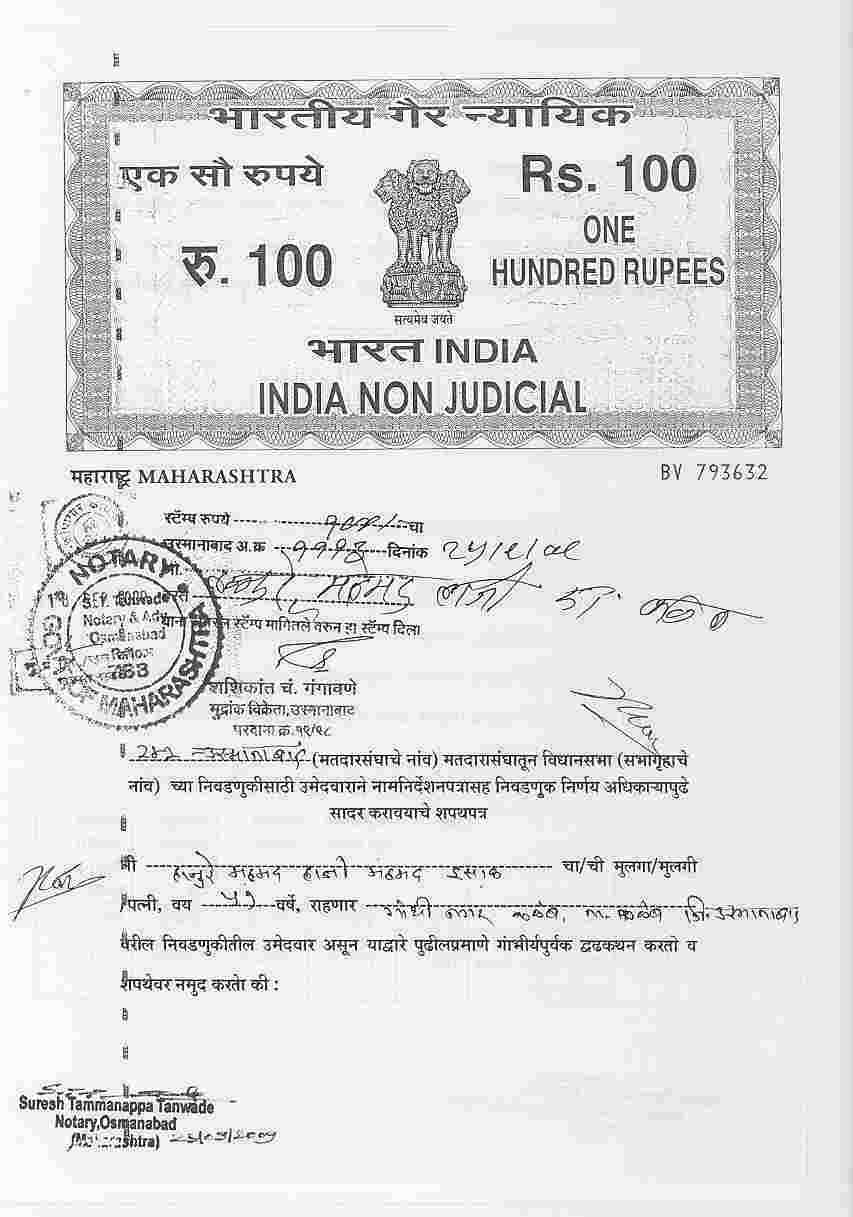 भारतीय गैर न्यायिक
एक सौ रुपये
Rs. 100
रु. 100
ONE
HUNDRED RUPEES
सत्यमेव जयते
भारत INDIA
INDIA NON JUDICIAL
महाराष्ट्र MAHARASHTRA
BV 793632
स्टॅम्प रुपये १००/- चा
उस्मानाबाद अ.क्र दिनांक
NOTARY
S.T. Tanwade
Notary & Adv
Osmanabad
GOVT OF MAHARASHTRA
यांना स्टॅम्प मागितले वरुन हा स्टॅम्प दिला
शशिकांत चं. गंगावणे
मुद्रांक विक्रेता,उस्मानाबाद
परवाना क्र.१९/९८
२४२ उस्मानाबाद (मतदारसंघाचे नांव) मतदारासंघातून विधानसभा (सभागृहाचे
नांव) च्या निवडणुकीसाठी उमेदवाराने नामनिर्देशनपत्रासह निवडणुक निर्णय अधिकाऱ्यापुढे
सादर करावयाचे शपथपत्र
मी महमद महमद इसाक चा/ची मुलगा/मुलगी
पत्नी, वय ५१ वर्षे, राहणार गांधी नगर कळंब, ता. कळंब जि. उस्मानाबाद
वरील निवडणुकीतील उमेदवार असून याद्वारे पुढीलप्रमाणे गांभीर्यपुर्वक द्वढकथन करतो व
शपथेवर नमुद करतो की :
Suresh Tammanappa Tanwade
Notary,Osmanabad
(Maharashtra) 23/09/2009